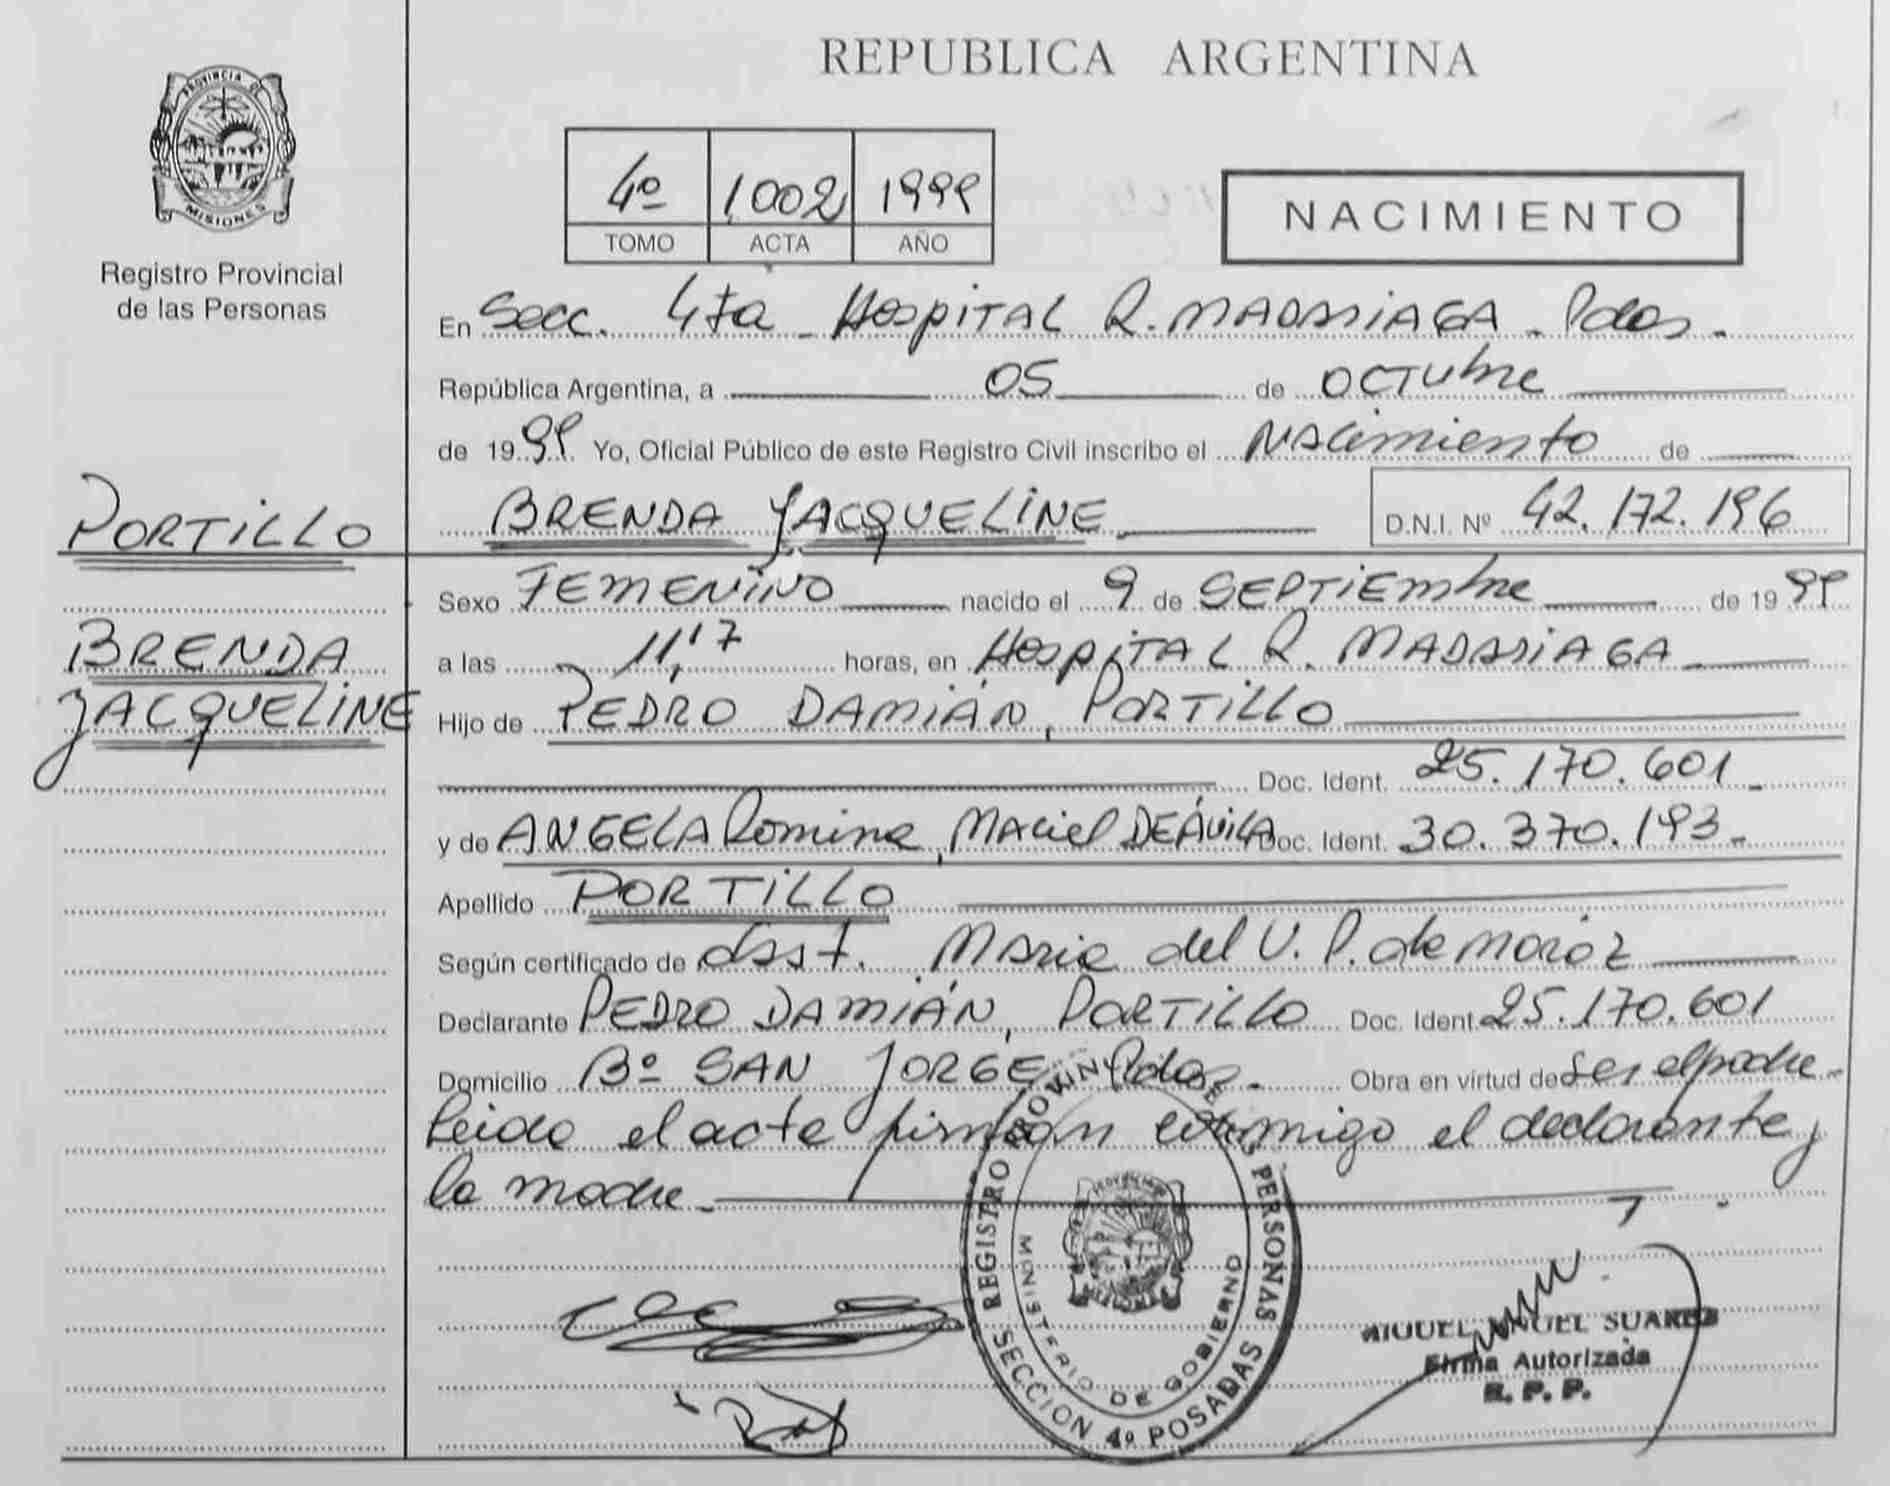 REPUBLICA ARGENTINA
PROVINCIA DE
MISIONES
Registro Provincial
de las Personas
4º 1002 1999
TOMO ACTA AÑO
NACIMIENTO
En Secc. 4ta - Hospital R. MADARIAGA - Pdas.
República Argentina, a 05 de OCTUbre
de 1999 Yo, Oficial Público de este Registro Civil inscribo el Nacimiento de
PORTILLO
BRENDA JACQUELINE D.N.I. Nº 42.172.196
Sexo FEMENINO nacido el 9 de SEPTIEmbre de 1999
BRENDA
a las 11,17 horas, en Hospital R. MADARIAGA
JACQUELINE
Hijo de PEDRO DAMIÁN, PORTILLO
Doc. Ident. 25.170.601
y de ANGELA Romina, Maciel DEÁVILA Doc. Ident. 30.370.193.-
Apellido PORTILLO
Según certificado de Maria del V. P. de moroz
Declarante PEDRO DAMIÁN, PORTILLO Doc. Ident. 25.170.601
Domicilio Bº SAN JORGE, Pdas. Obra en virtud de Ser el padre.-
Leido el acto firman conmigo el declarante y
la madre.
REGISTRO PERSONAS
MINISTERIO DE GOBIERNO
SECCION 4º POSADAS
MIGUEL ANGEL SUAREZ
Firma Autorizada
R. P. P.